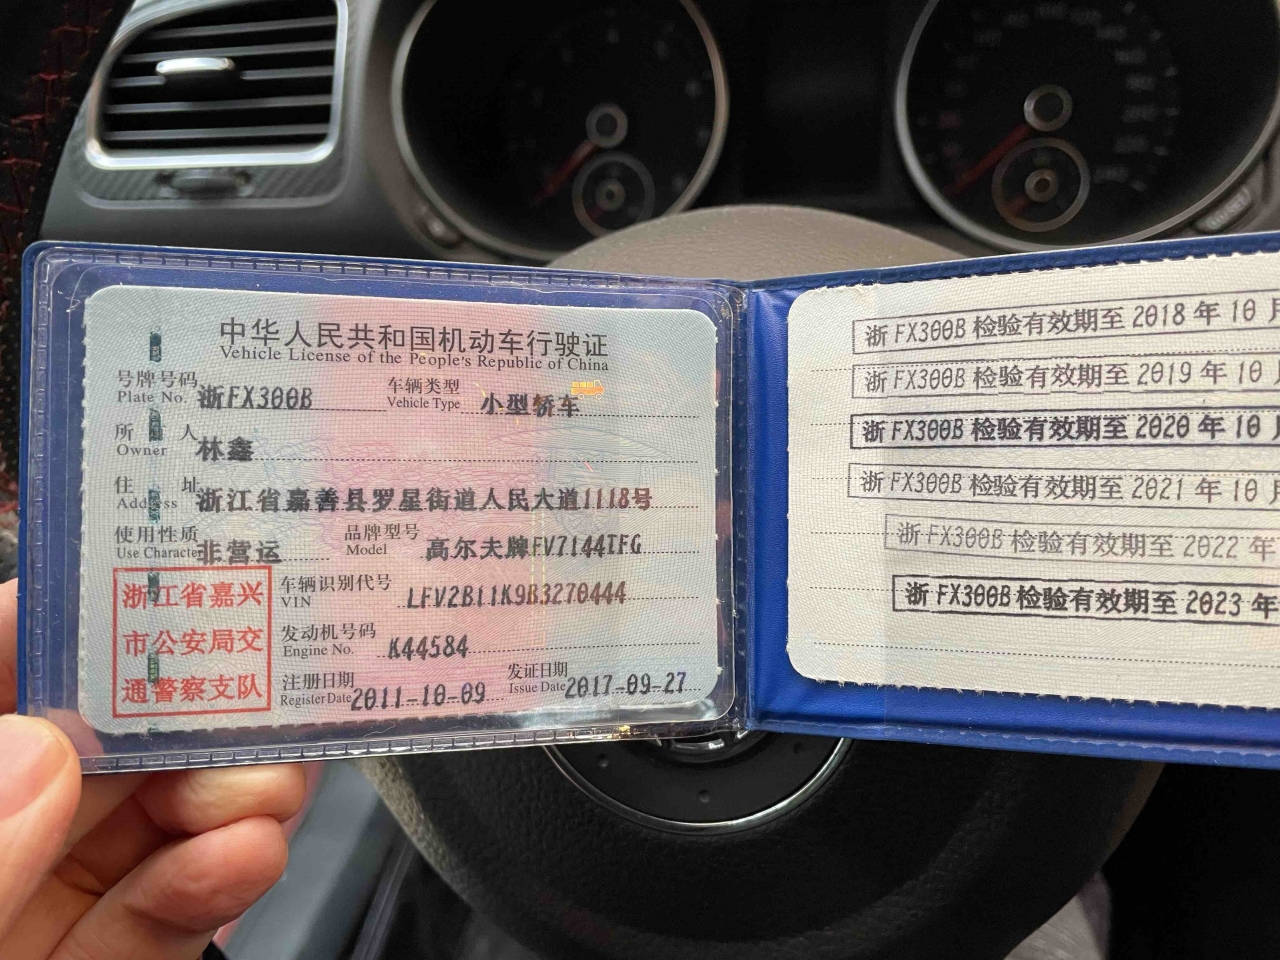 中华人民共和国机动车行驶证
Vehicle License of the People's Republic of China
号牌号码 浙FX300B 车辆类型 小型轿车
Plate No. Vehicle Type
所有人 林鑫
Owner
住址 浙江省嘉善县罗星街道人民大道1118号
Address
使用性质 非营运 品牌型号 高尔夫牌FV7144TFG
Use Character Model
浙江省嘉兴
市公安局交
通警察支队
车辆识别代号 LFV2B11K9B3270444
VIN
发动机号码 K44584
Engine No.
注册日期 2011-10-09 发证日期 2017-09-27
Register Date Issue Date
浙FX300B检验有效期至2018年10月
浙FX300B检验有效期至2019年10月
浙FX300B检验有效期至2020年10月
浙FX300B检验有效期至2021年10月
浙FX300B检验有效期至2022年
浙FX300B检验有效期至2023年